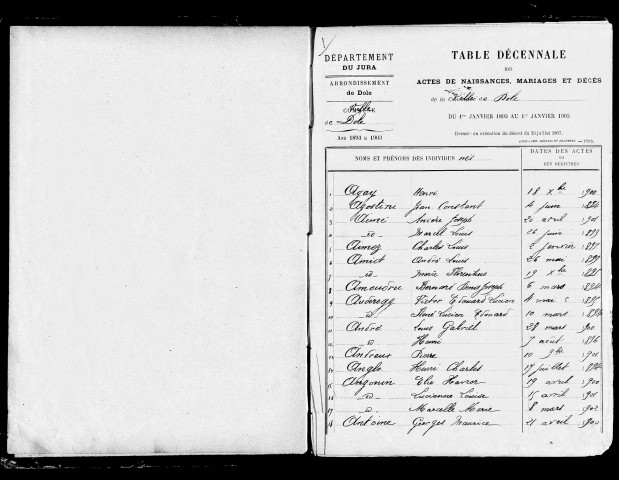 DÉPARTEMENT
DU JURA
ARRONDISSEMENT
de Dole
Dole
Ans 1893 à 1903
TABLE DÉCENNALE
DES
ACTES DE NAISSANCES, MARIAGES ET DÉCÈS
de la Dole
DU 1er JANVIER 1893 AU 1er JANVIER 1903
Dressée en exécution du décret du 20 juillet 1807.
NOMS ET PRÉNOMS DES INDIVIDUS nés
DATES DES ACTES
OU
DES REGISTRES
1 Agay Henri 18 Xbre 1900
2 Agostini Jean Constant 16 juin
3 Aimé avril 1901
4 id Marcel Louis 26 juin
5 Aumez Charles Louis 2 janvier
6 Amiet André Louis 26 mai
7 id Marie Florentine 19 Xbre
8 Amoudru Bernard 6 mars
9 Auderegg Victor Edouard Lucien 4 mai
10 id René Lucien Edouard 10 mars
11 André Louis Gabriel 28 mars 1900
12 id Henri 7 août 1896
13 Andreux Pierre 10 9bre 1901
14 Anglo Henri Charles 17 juillet
15 Angonin Elie 19 avril 1900
16 id Lucienne Louise 15 avril 1901
17 id Marcelle Marie 8 mars 1902
18 Antoine Georges Maurice 21 avril 1900